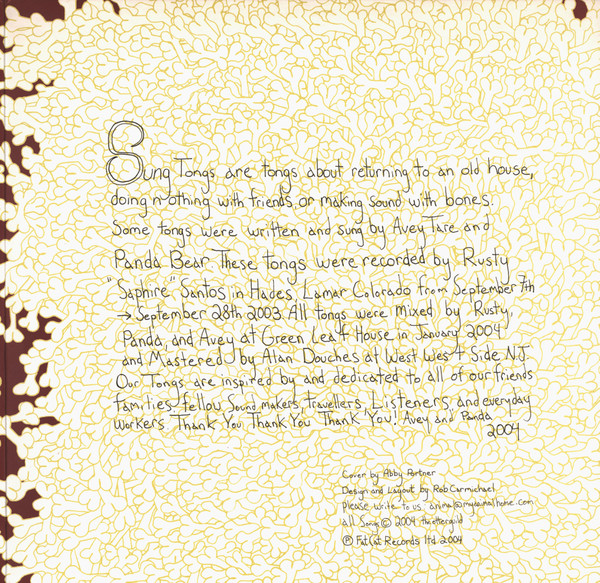 Sung Tongs are tongs about returning to an old house,
doing nothing with friends, or making sound with bones.
Some tongs were written and sung by Avey Tare and
Panda Bear. These tongs were recorded by Rusty
"Saphire" Santos in Hades, Lamar Colorado from September 7th
→ September 28th 2003. All tongs were Mixed by Rusty,
Panda, and Avey at Green Leaff House in January 2004
and Mastered by Alan Douches at West West Side N.J.
Our Tongs are inspired by and dedicated to all of our friends
families, fellow Sound makers, travellers, Listeners, and everyday
workers. Thank You Thank You Thank You! Avey and Panda
2004
Cover by Abby Portner
Design and Layout by Rob Carmichael
please write to us: animal@myanimalhome.com
all Songs © 2004 the etterguild
Ⓟ FatCat Records ltd 2004